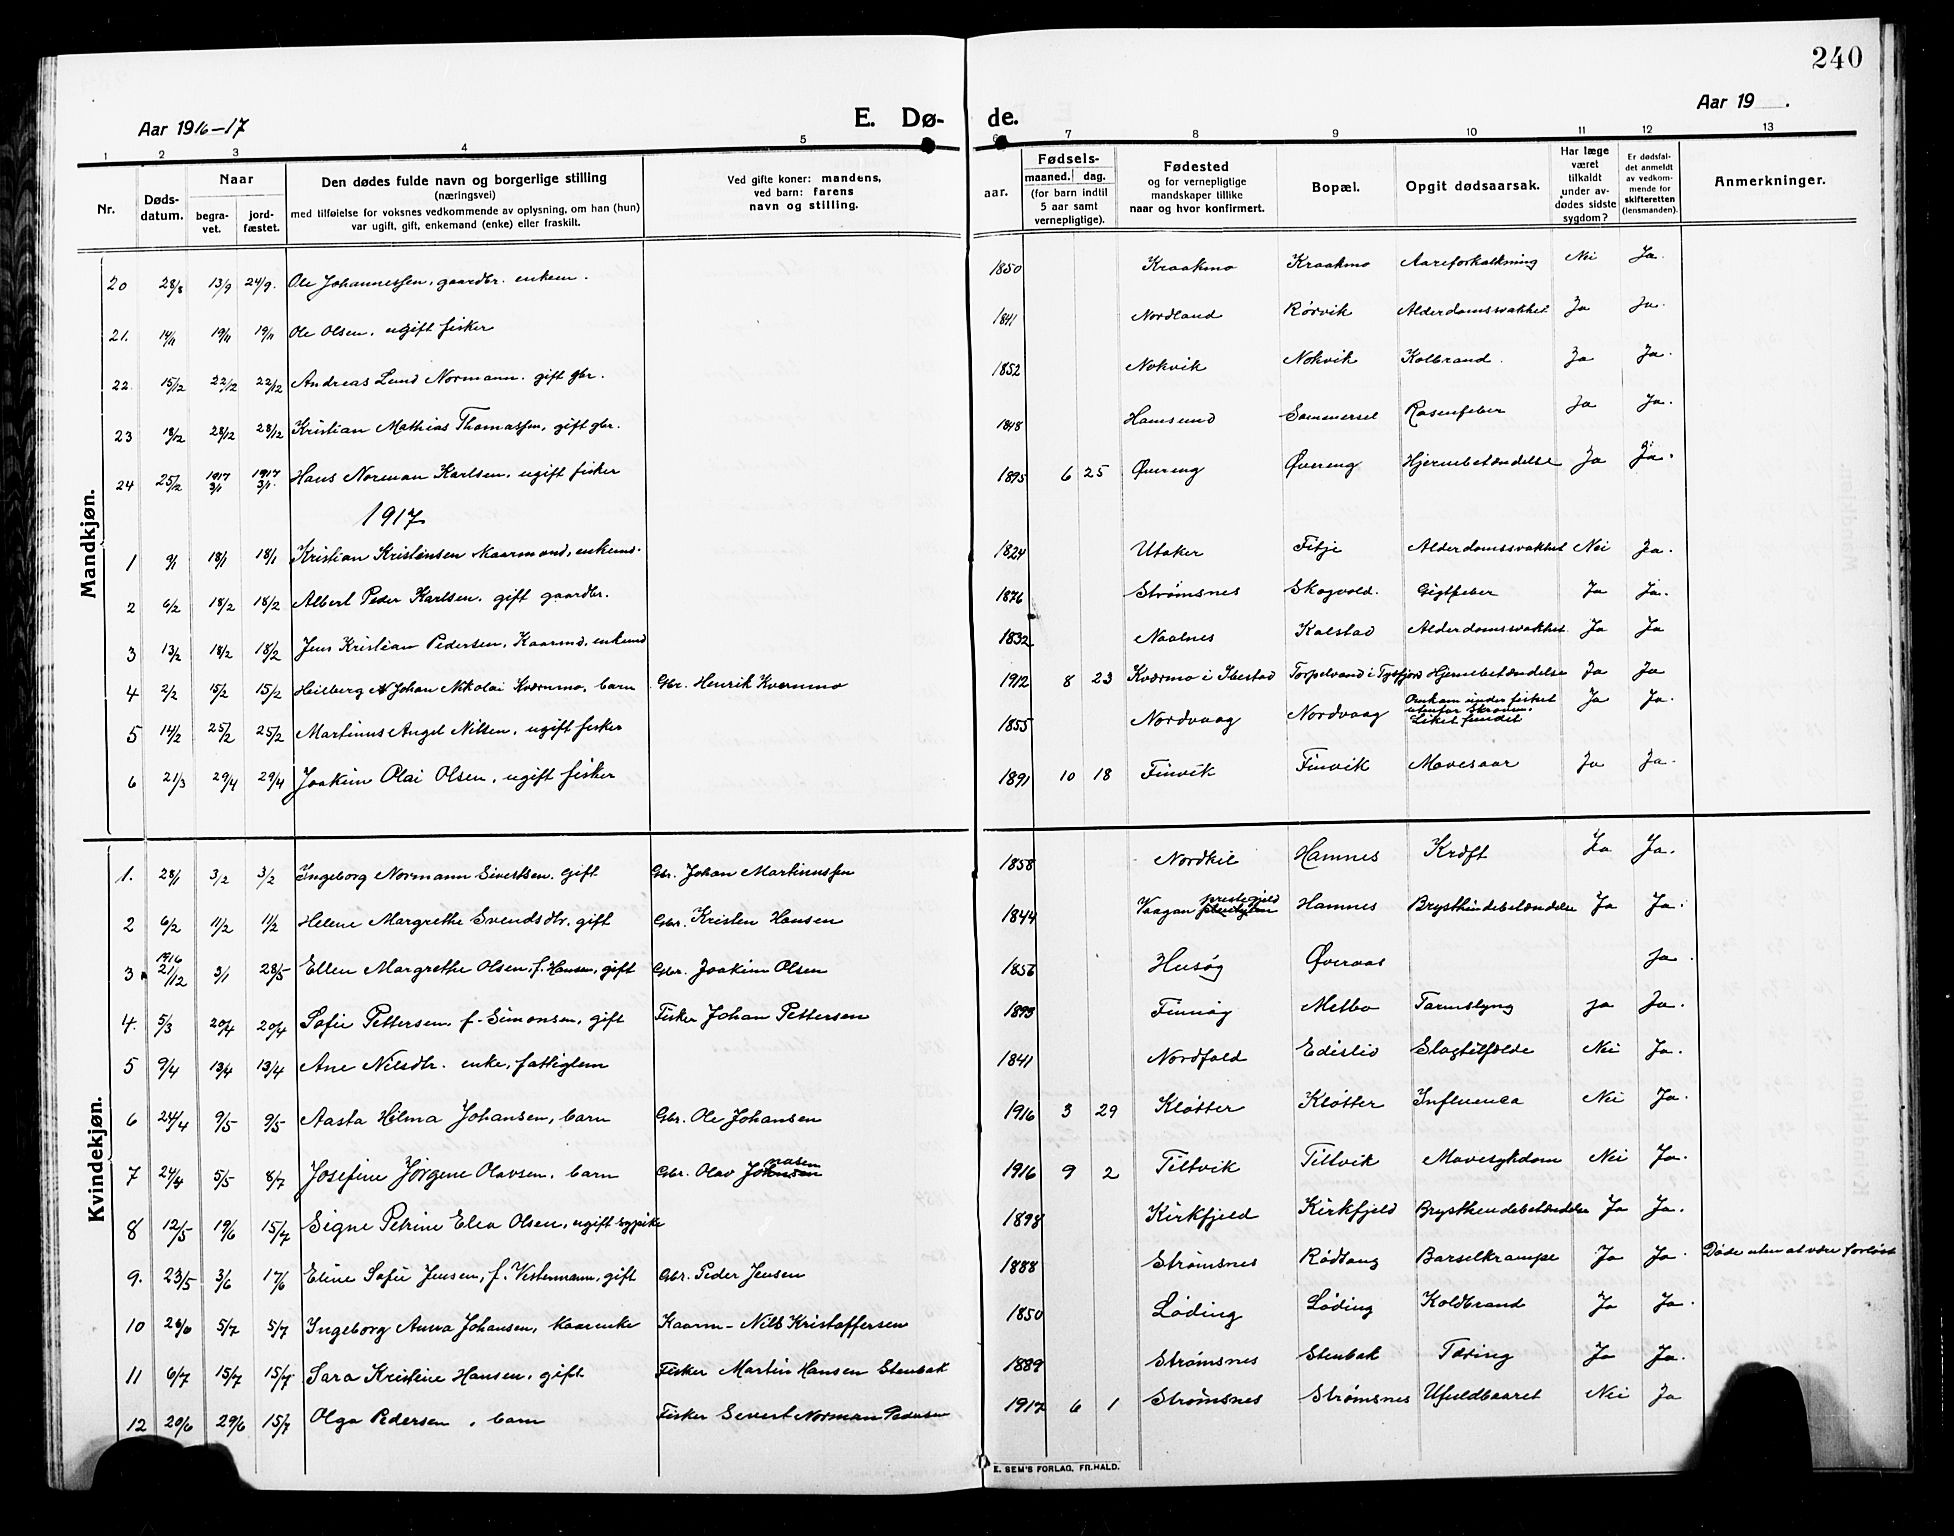 240
Aar 1916-17
E. Dø-
de.
Aar 19 .
1 2 3 4 5 6 7 8 9 10 11 12 13
Nr.
Døds-
datum.
Naar
begra-
vet.
jord-
fæstet.
Den dødes fulde navn og borgerlige stilling
(næringsvei)
med tilføielse for voksnes vedkommende av oplysning, om han (hun)
var ugift, gift, enkemand (enke) eller fraskilt.
Ved gifte koner: mandens,
ved barn: farens
navn og stilling.
aar.
Fødsels-
maaned. dag.
(for barn indtil
5 aar samt
vernepligtige).
Fødested
og for vernepligtige
mandskaper tillike
naar og hvor konfirmert.
Bopæl.
Opgit dødsaarsak.
Har læge
været
tilkaldt
under av-
dødes sidste
sygdom?
Er dødsfal-
det anmeldt
av vedkom-
mende for
skifteretten
(lensmanden).
Anmerkninger.
Mandkjøn.
20 28/8 13/9 24/9. Ole Johannessen, gaardbr. enkem. 1850 Kraakmo Kraakmo Aareforkalkning Nei Ja.
21. 14/11 19/11 19/11 Ole Olsen, ugift fisker 1841 Nordland Rørvik Alderdomssvakhet Ja Ja.
22. 15/12 22/12 22/12 Andreas Lund Normann. gift gbr. 1852 Nokvik Nokvik Kolbrand. Ja Ja.
23 18/12 28/12 28/12 Kristian Mathias Thomassen, gift gbr. 1848 Hamsund Sommersel Rosenfeber Ja Ja.
24 25/12 1917 3/1 1917 3/1. Hans Norman Karlsen, ugift fisker 1895 6 25 Øvereng Øvereng Hjernebetændelse Ja Ja.
1917
1 9/1 18/1 18/1 Kristian Kristensen Kaarmand, enkemd. 1824 Utaker Fitje Alderdomssvakhet Nei Ja.
2 6/2 18/2 18/2 Albert Peder Karlsen. gift gaardbr. 1876 Strømsnes Skogvold. Gigtfeber Ja Ja.
3 13/2 18/2 18/2 Jens Kristian Pedersen, Kaarmd, enkemd 1832 Naalnes Kalstad Alderdomssvakhet. Ja Ja
4 2/2 15/2 15/2 Heilberg Johan Nikolai Kværnmo, barn Gbr. Henrik Kvernmo 1912 8 23 Kværmo i Ibestad Torpelvand i Tysfjord Hjernebetændelse Ja Ja
5 14/2 25/2 25/2 Martinus Angel Nilsen, ugift fisker 1855 Nordvaag Nordvaag Omkom under fisket utenfor Skroven. Liket fundet Ja Ja.
6 21/3 29/4 29/4 Joakim Olai Olsen, ugift fisker 1891 10 18 Finvik Finvik Mavesaar Ja Ja.
Kvindekjøn.
1. 28/1 3/2 3/2 Ingeborg Normann Sivertsen. gift Gbr. Johan Martinussen 1858 Nordkil Hamnes Kræft Ja Ja.
2 6/2 11/2 11/2 Helene Margrethe Svendsdtr. gift Gbr. Kristen Hansen 1844 Vaagan prestegjeld Hamnes Brysthindebetændelse Ja Ja.
3 1916 21/12 3/1 28/5 Ellen Margrethe Olsen, f. Hansen, gift Gbr. Joakim Olsen 1856 Husøy Øveraas Ja.
4. 5/3 20/4 20/4 Sofie Pettersen f. Simonsen, gift Fisker Johan Pettersen 1893 Finnøy Melbo Tarmslyng Ja Ja.
5 9/4 13/4 13/4 Ane Nilsdtr. enke, fattiglem 1841 Nordfold Edislid Slagtilfælde Nei Ja.
6 24/4 9/5 9/5 Aasta Hilma Johansen, barn Gbr. Ole Johansen 1916 3 29 Kløtter Kløtter Influenca Nei Ja.
7 24/4 5/5 8/7 Josefine Jørgene Olavsen, barn Gbr. Olav Jonasen 1916 9 2 Tiltvik Tiltvik Mavesykdom Nei Ja.
8 12/5 19/6 15/7 Signe Petrine Elea Olsen, ugift sypike 1898 Kirkfjeld Kirkfjeld Brysthindebetændelse Ja Ja.
9. 23/5 3/6 17/6 Eline Sofie Jensen, f. Vestermann, gift Gbr. Peder Jensen 1888 Strømsnes Rødtang Barselkrampe Ja Ja. Døde uten at være forløst
10 26/6 5/7 5/7 Ingeborg Anna Johansen, kaarenke Kaarm- Nils Kristoffersen 1850 Løding Løding Koldbrand Ja Ja.
11 6/7 15/7 15/7 Sara Kristine Hansen, gift Fisker Martin Hansen Stenbak 1889 Strømsnes Stenbak Tæring Ja Ja.
12 20/6 29/6 15/7 Olga Pedersen, barn Fisker Severt Norman Pedersen 1917 6 1 Strømsnes Strømsnes Ufuldbaaret Nei Ja
E. SEM'S FORLAG, FR.HALD.